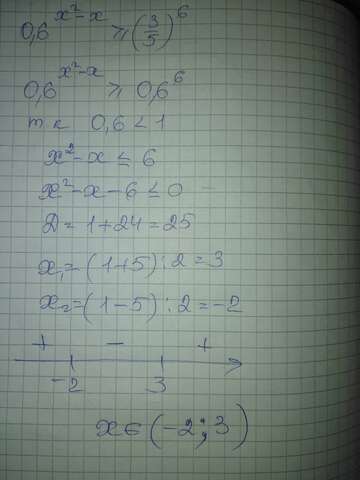 0,6^(x²-x) ⩾ (3/5)^6
0,6^(x²-x) ⩾ 0,6^6
т к 0,6 < 1
x²-x ≤ 6
x²-x-6 ≤ 0
D = 1+24 = 25
x₁=(1+5):2 = 3
x₂=(1-5):2 = -2
+ - +
-2 3
x∈(-2;3)